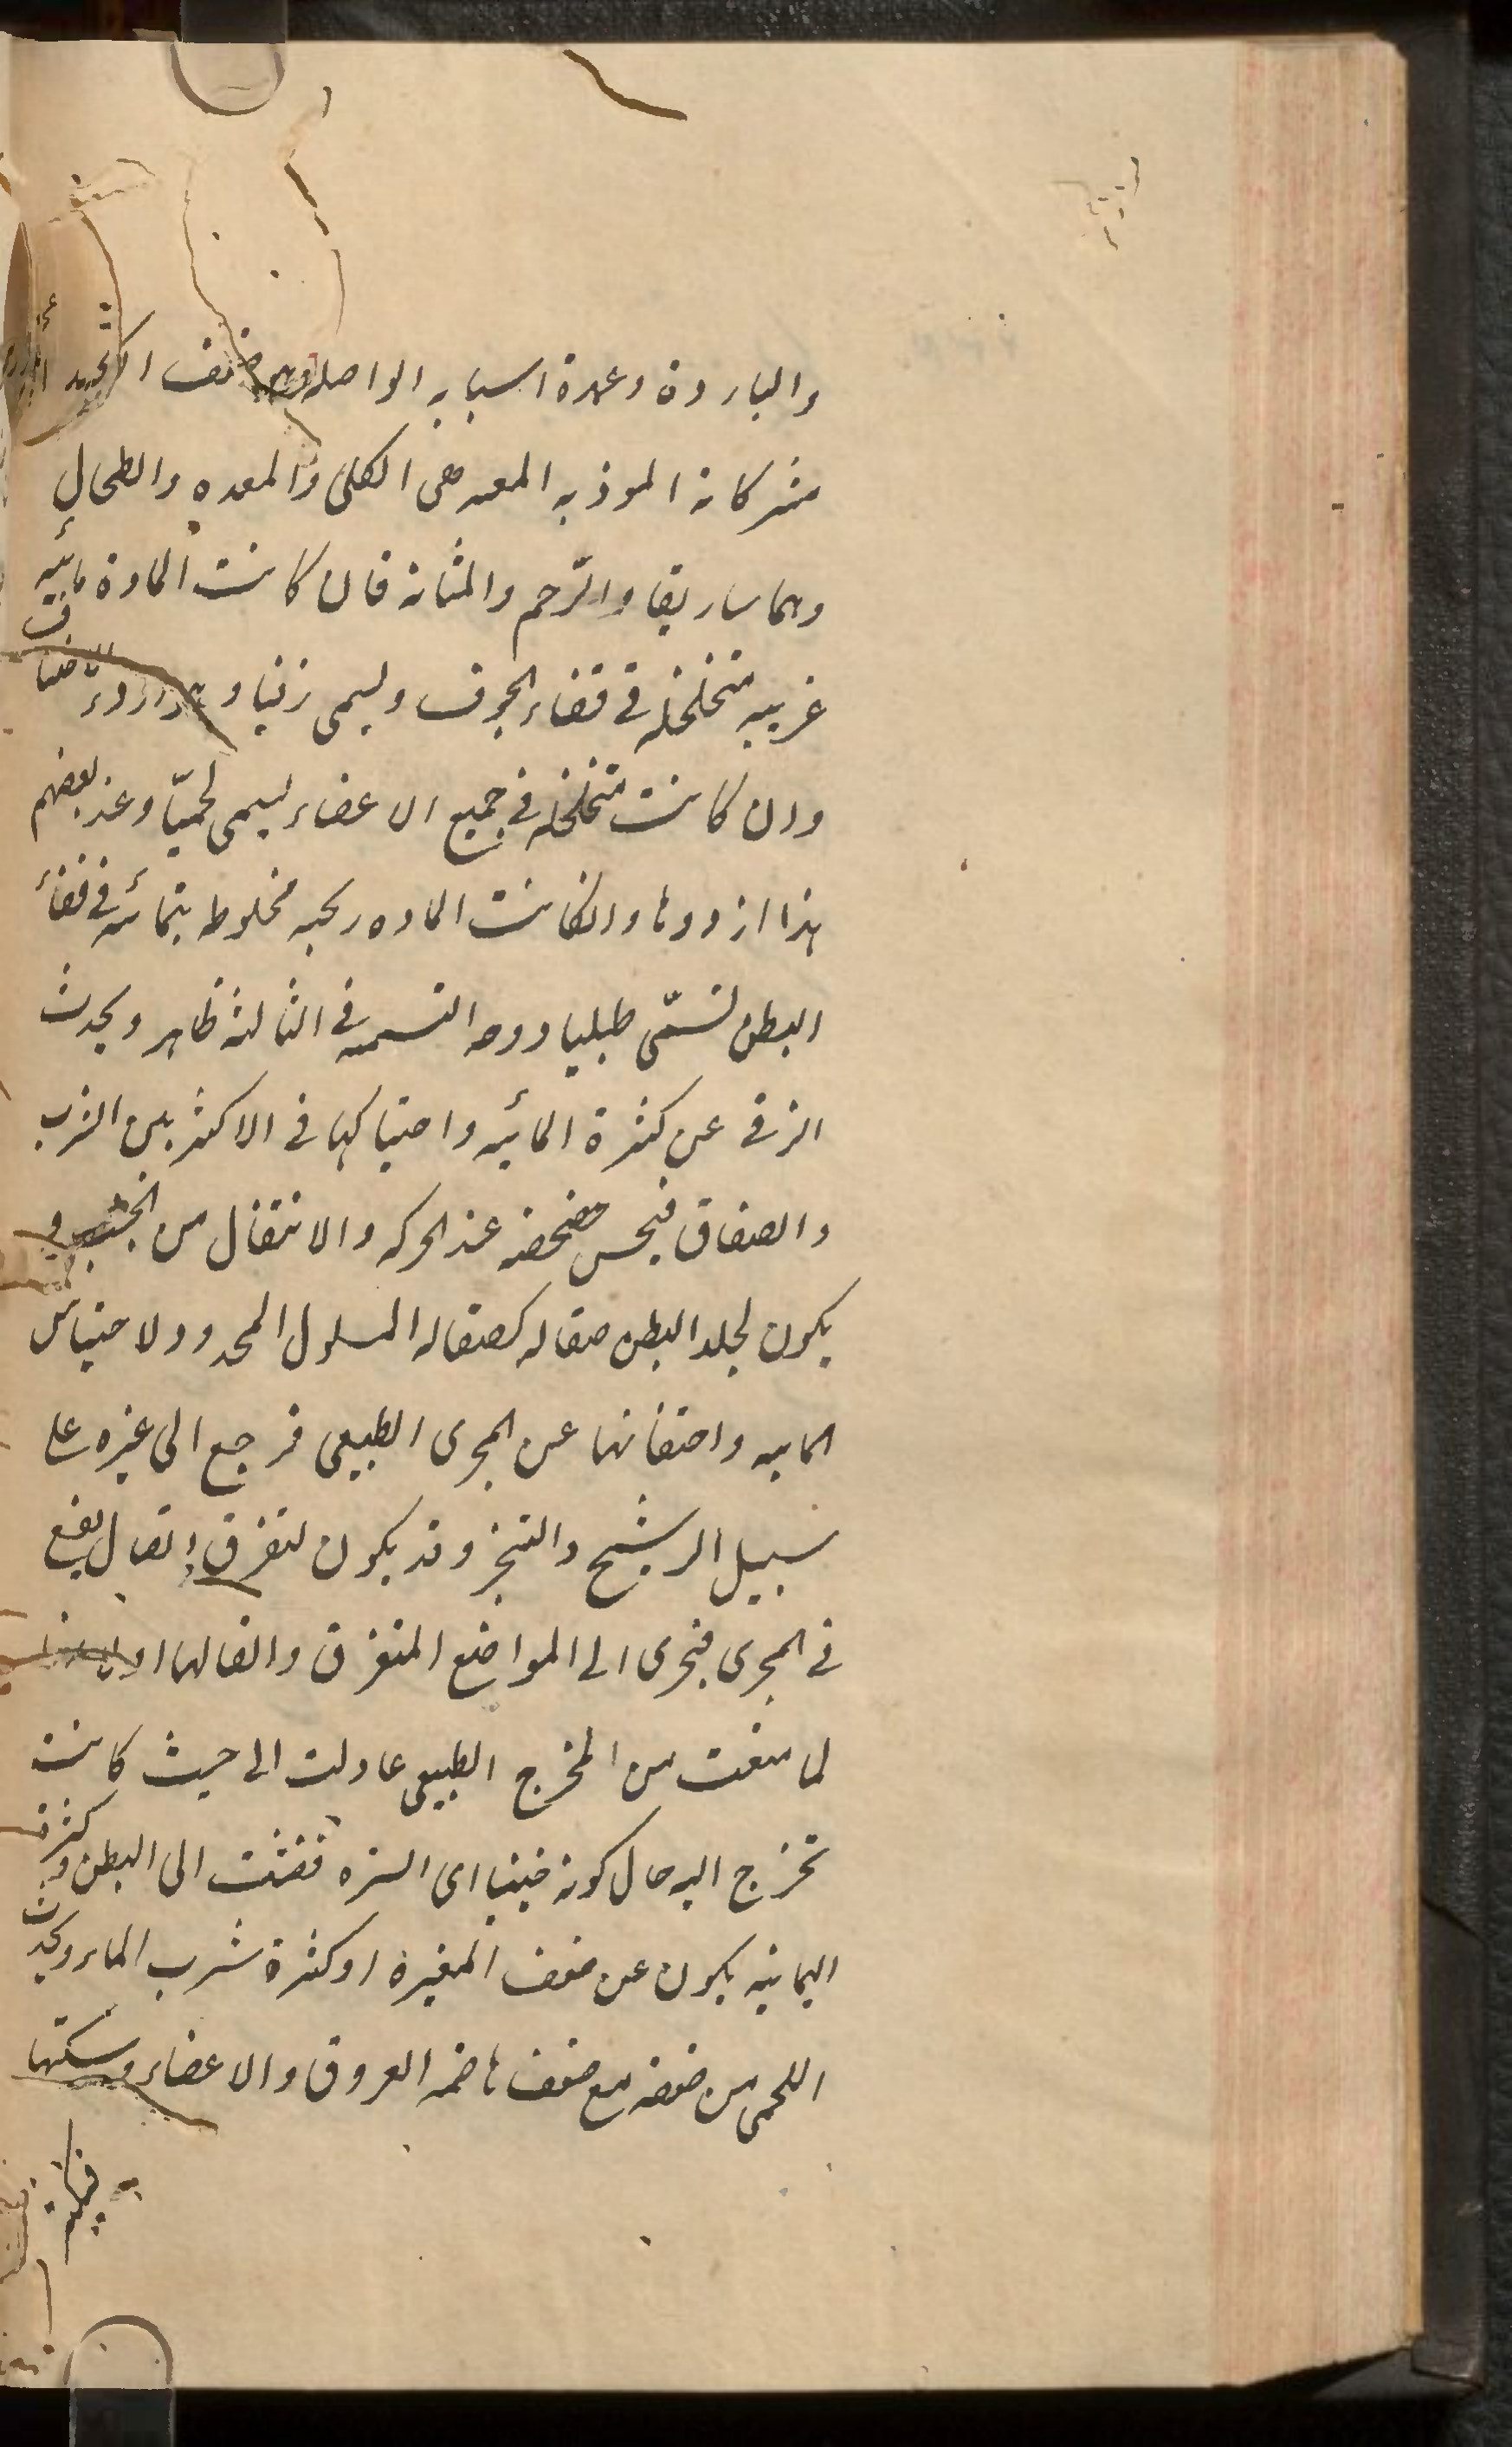 والباردة وعمدة اسبابه الواصله ضعف الكبد
مشركانة الموذبه المعدهى الكلى والمعده والطحال
وماساريقا والرحم والمثانة فان كانت المادة مائيه
غريبه متخلخله فى فضاء الجوف ويسمى زقيا
وان كانت متخلخله فى جميع الاعضاء ليسمى لحميّا وعند بعضهم
هذا ازدوها وانكانت الماده ريحيه مخلوط بمائيه فى فضاء
البطن تسمّى طبليا ووجه التسميه فى الثالثه ظاهر ويحدث
الزقى عن كثرة المائيه واحتباسها فى الاكثر بين الثرب
والصفاق فيحس خضخضه عند الحركه والانتقال من الجنب و
يكون لجلد البطن صقاله كصقاله المسلول المحدود لاحتباس
المائيه واحتقانها عن المجرى الطبيعى فرجع الى غيره على
سبيل الرشيح والتبخر وقد يكون لتفرق اتصال يقع
فى المجرى فتجرى الى المواضع المتفرق واتصالها
لما منعت من المخرج الطبيعى عاولت الى حيث كانت
تخرج اليه حال كونه جنينا اى السره فنفثت الى البطن وكثرة
اليمانيه يكون عن ضعف المغيرة او كثرة شرب الماء ويحدث
اللحمى من ضعفه مع ضعف هاضمه العروق والاعضاء ومسكتها